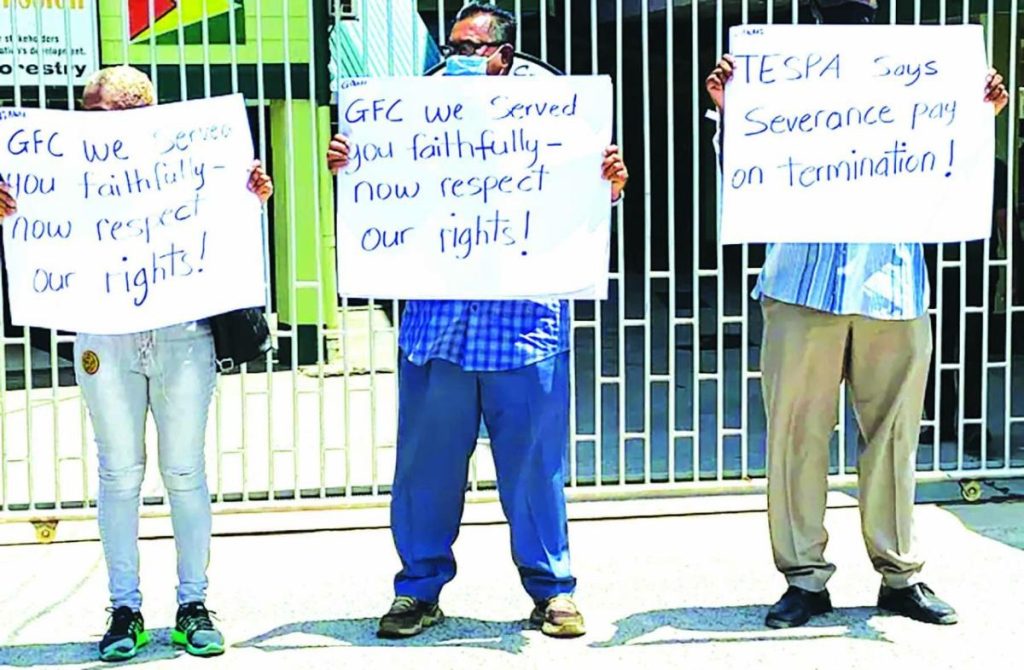 stakeholders
development.
orestry
GFC we Served
you faithfully-
now respect
our rights!
GFC we Served
you faithfully-
now respect
our rights!
TESPA Says
Severance pay
on termination!